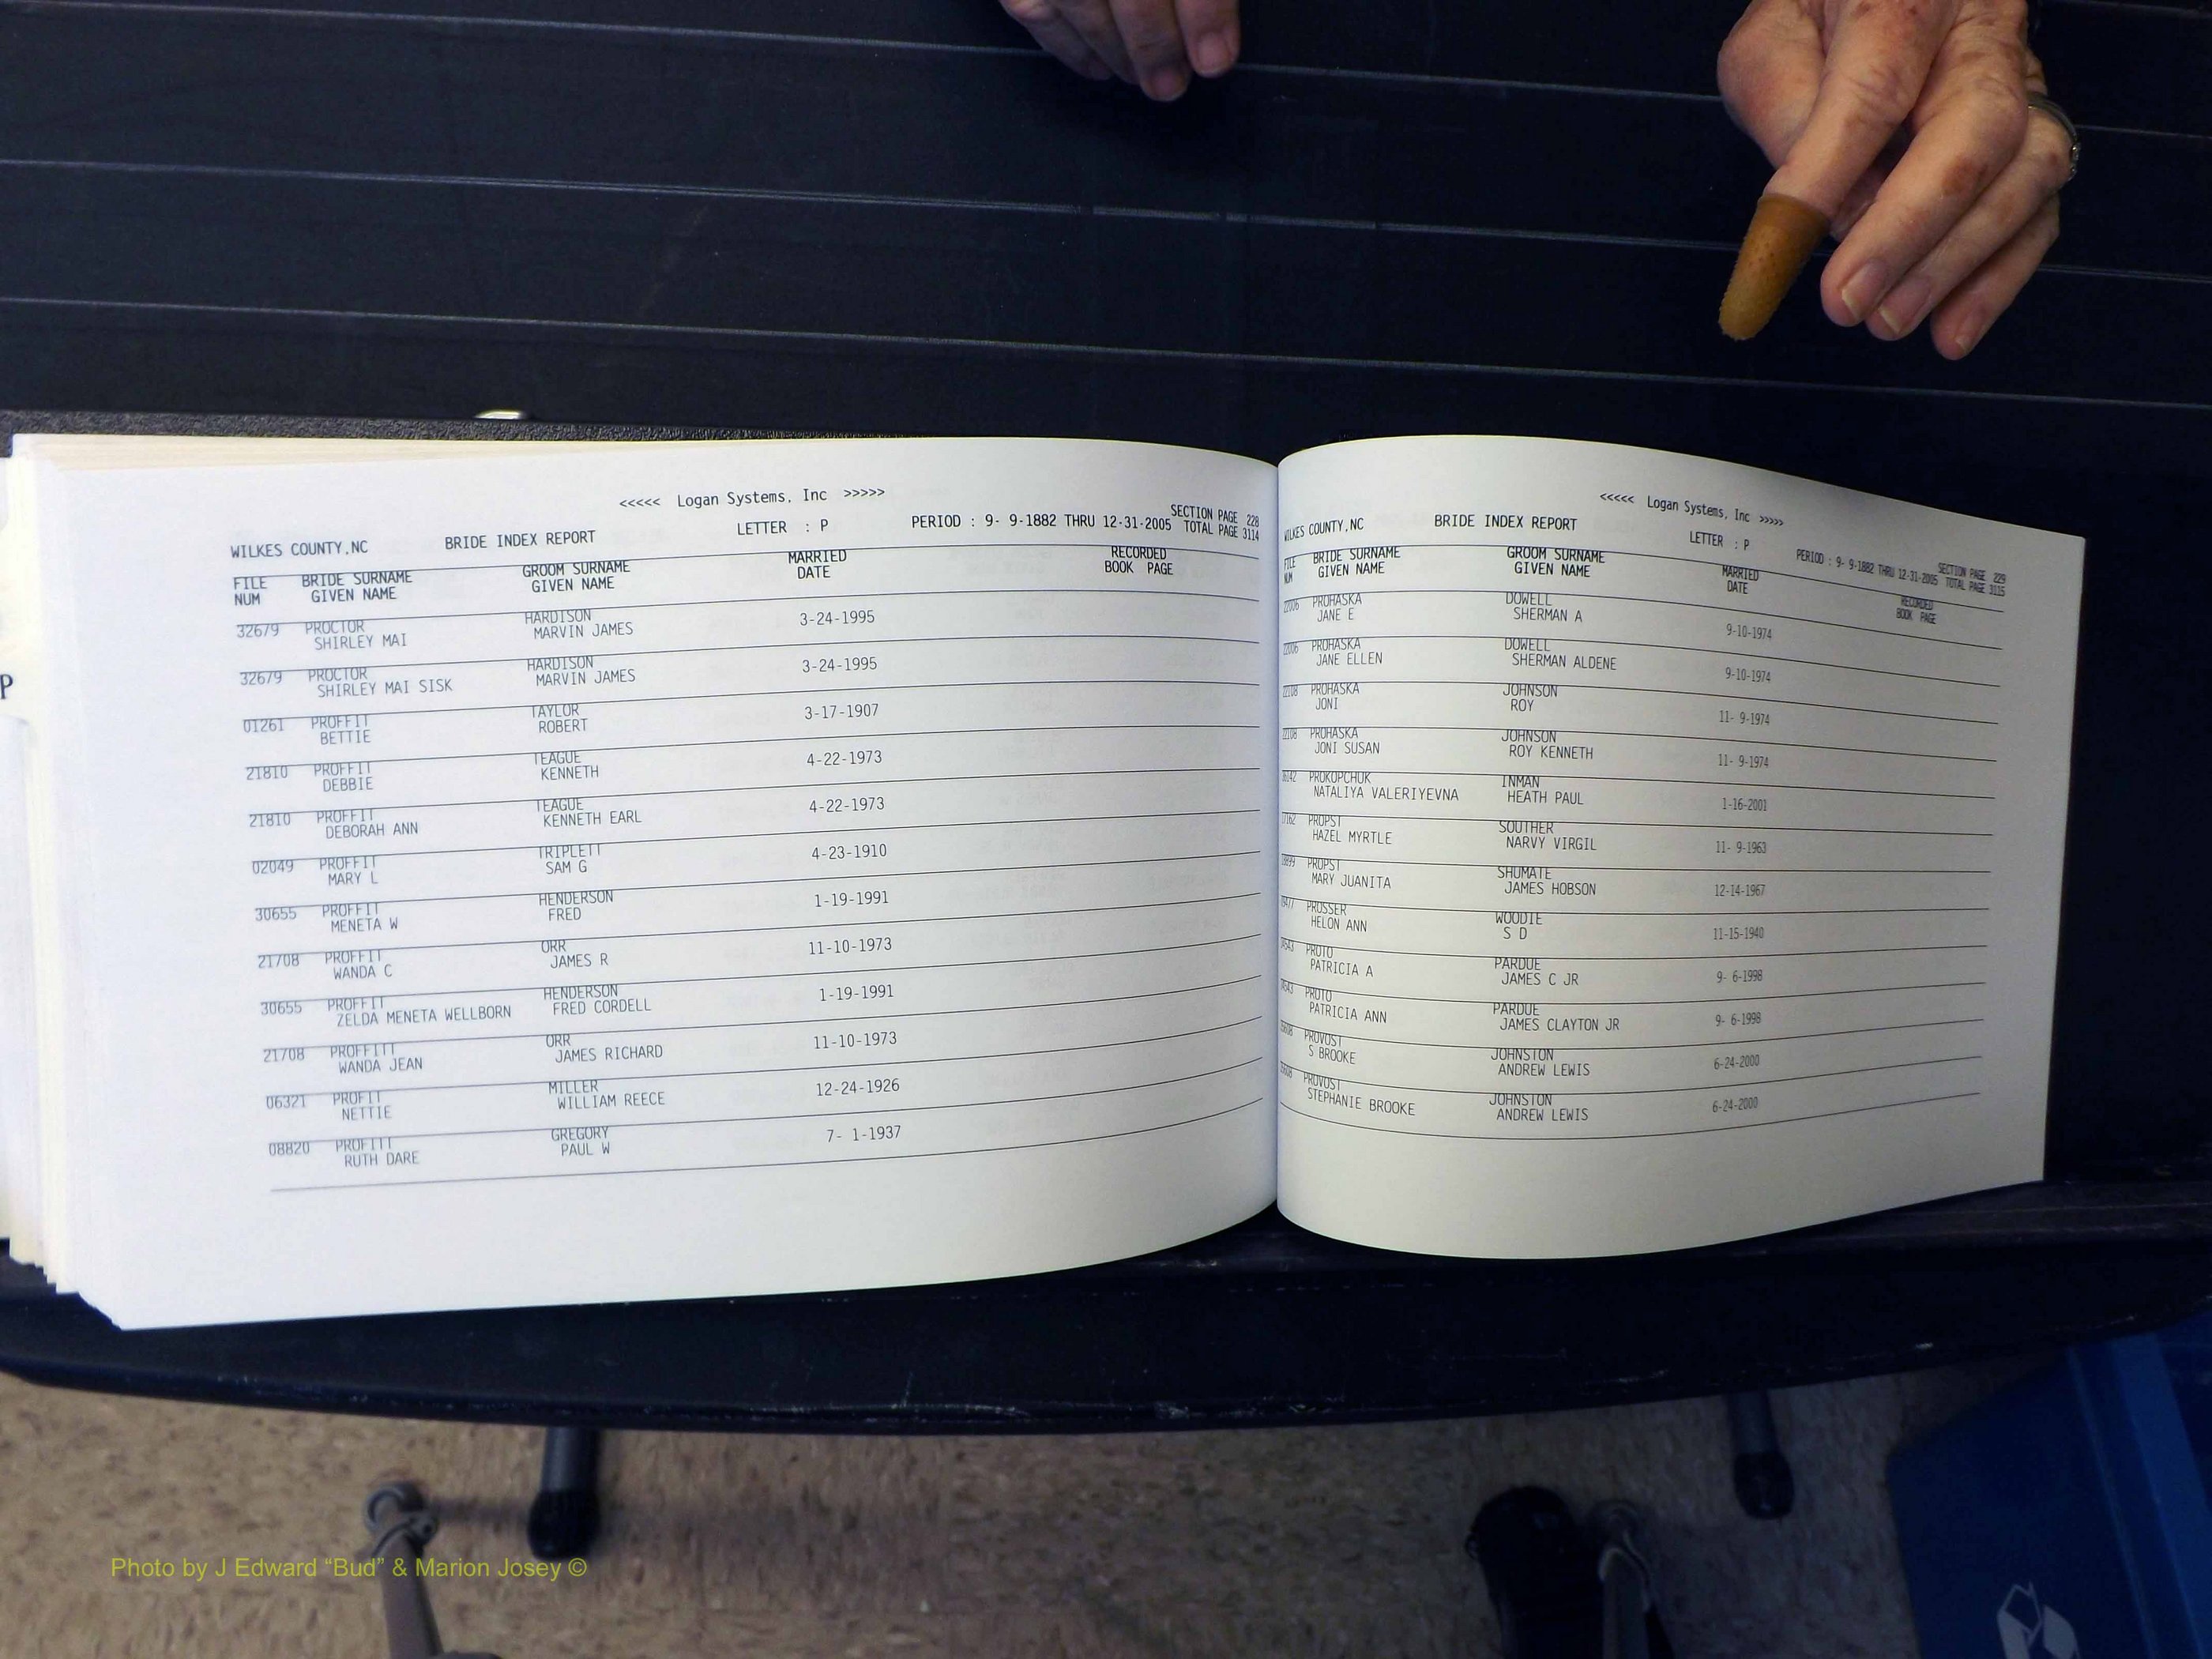 <<<<< Logan Systems, Inc >>>>>
SECTION PAGE 228
WILKES COUNTY,NC BRIDE INDEX REPORT LETTER : P PERIOD : 9- 9-1882 THRU 12-31-2005 TOTAL PAGE 3114
FILE BRIDE SURNAME GROOM SURNAME MARRIED RECORDED
NUM GIVEN NAME GIVEN NAME DATE BOOK PAGE
32679 PROCTOR HARDISON 3-24-1995
SHIRLEY MAI MARVIN JAMES
32679 PROCTOR HARDISON 3-24-1995
SHIRLEY MAI SISK MARVIN JAMES
01261 PROFFIT TAYLOR 3-17-1907
BETTIE ROBERT
21810 PROFFIT TEAGUE 4-22-1973
DEBBIE KENNETH
21810 PROFFIT TEAGUE 4-22-1973
DEBORAH ANN KENNETH EARL
02049 PROFFIT TRIPLETT 4-23-1910
MARY L SAM G
30655 PROFFIT HENDERSON 1-19-1991
MENETA W FRED
21708 PROFFIT ORR 11-10-1973
WANDA C JAMES R
30655 PROFFIT HENDERSON 1-19-1991
ZELDA MENETA WELLBORN FRED CORDELL
21708 PROFFITT ORR 11-10-1973
WANDA JEAN JAMES RICHARD
06321 PROFIT MILLER 12-24-1926
NETTIE WILLIAM REECE
08820 PROFITT GREGORY 7- 1-1937
RUTH DARE PAUL W
P
<<<<< Logan Systems, Inc >>>>>
SECTION PAGE 229
WILKES COUNTY,NC BRIDE INDEX REPORT LETTER : P PERIOD : 9- 9-1882 THRU 12-31-2005 TOTAL PAGE 3115
FILE BRIDE SURNAME GROOM SURNAME MARRIED RECORDED
NUM GIVEN NAME GIVEN NAME DATE BOOK PAGE
22006 PROHASKA DOWELL 9-10-1974
JANE E SHERMAN A
22006 PROHASKA DOWELL 9-10-1974
JANE ELLEN SHERMAN ALDENE
22108 PROHASKA JOHNSON 11- 9-1974
JONI ROY
22108 PROHASKA JOHNSON 11- 9-1974
JONI SUSAN ROY KENNETH
PROKOPCHUK INMAN 1-16-2001
NATALIYA VALERIYEVNA HEATH PAUL
PROPST SOUTHER 11- 9-1963
HAZEL MYRTLE NARVY VIRGIL
PROPST SHUMATE 12-14-1967
MARY JUANITA JAMES HOBSON
PROSSER WOODIE 11-15-1940
HELON ANN S D
PROTO PARDUE 9- 6-1998
PATRICIA A JAMES C JR
PROTO PARDUE 9- 6-1998
PATRICIA ANN JAMES CLAYTON JR
PROVOST JOHNSTON 6-24-2000
S BROOKE ANDREW LEWIS
PROVOST JOHNSTON 6-24-2000
STEPHANIE BROOKE ANDREW LEWIS
Photo by J Edward “Bud” & Marion Josey ©